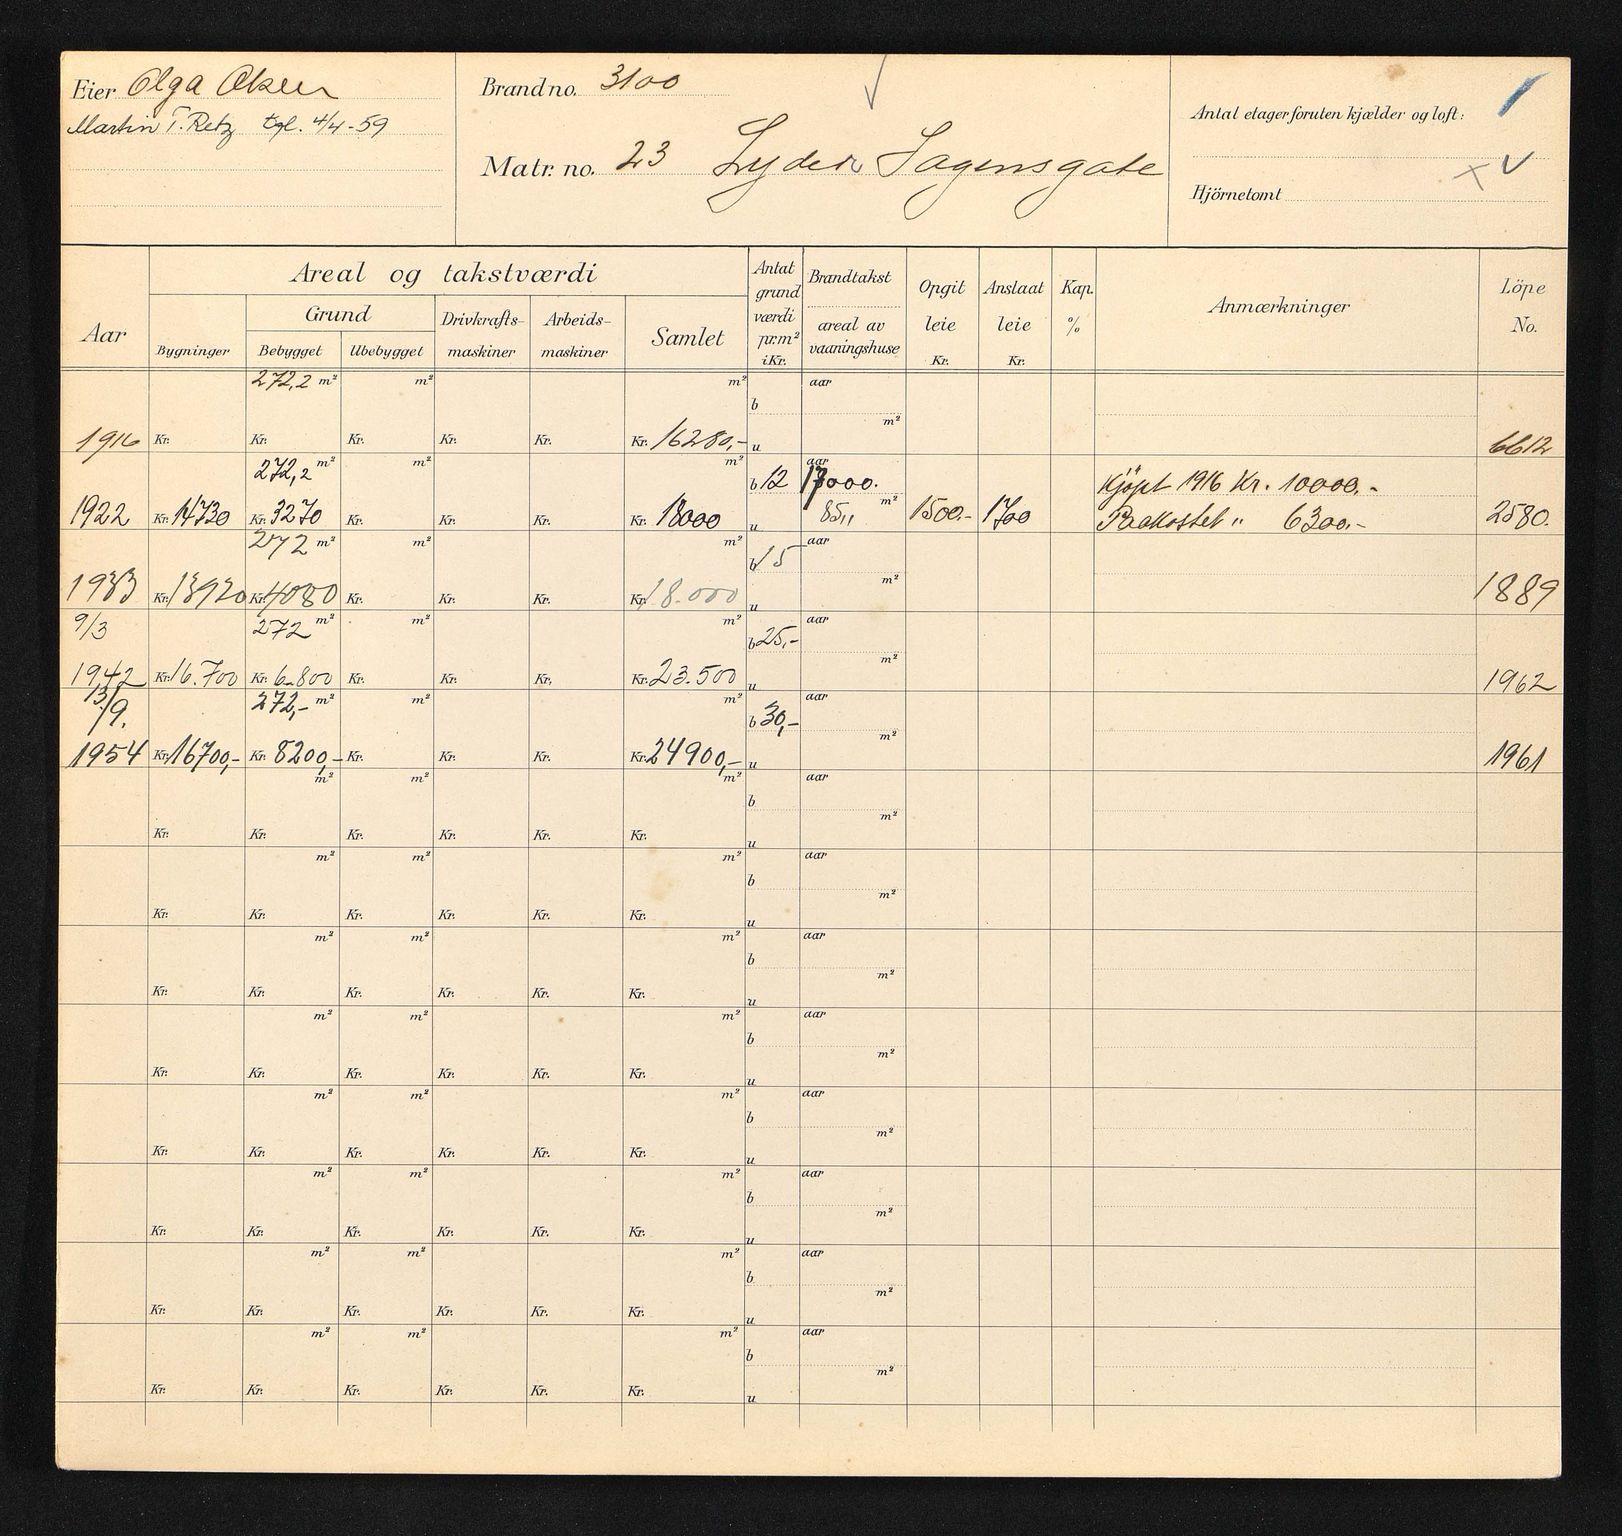 Eier Olga Olsen
Martin T. Retz tgl. 4/4-59
Brand no. 3100
Matr. no. 23 Lyder Sagensgate
Antal etager foruten kjælder og loft: 1
Hjörnetomt
Aar
Areal og takstværdi
Bygninger
Grund
Bebygget Ubebygget
Drivkrafts-
maskiner
Arbeids-
maskiner
Samlet
Antat
grund
værdi
pr.m²
i Kr.
Brandtakst
areal av
vaaningshuse
Opgit
leie
Kr.
Anslaat
leie
Kr.
Kap.
%
Anmærkninger
Löpe
No.
272,2 m² m² m² aar
b
m²
1916 Kr. Kr. Kr. Kr. Kr. Kr. 16280,- u 6612
272,2 m² m² m² aar
b 12 17000. Kjöpt 1916 Kr. 10000.-
1922 Kr. 14730 Kr. 3270 Kr. Kr. Kr. Kr. 18000 u 85,, m² 1500.- 1700 Paakostet " 6300.- 2580.
272 m² m² m² aar
b 15
m²
1933 Kr. 13920 Kr. 4080 Kr. Kr. Kr. Kr. 18.000 u 1889
9/3 272 m² m² m² aar
b 25,-
m²
1942 Kr. 16.700 Kr. 6.800 Kr. Kr. Kr. Kr. 23.500 u 1962
13/9. 272,- m² m² m² aar
b 30,-
m²
1954 Kr. 16700,- Kr. 8200,- Kr. Kr. Kr. Kr. 24900,- u 1961
m² m² m² aar
b
m²
Kr. Kr. Kr. Kr. Kr. Kr. u
m² m² m² aar
b
m²
Kr. Kr. Kr. Kr. Kr. Kr. u
m² m² m² aar
b
m²
Kr. Kr. Kr. Kr. Kr. Kr. u
m² m² m² aar
b
m²
Kr. Kr. Kr. Kr. Kr. Kr. u
m² m² m² aar
b
m²
Kr. Kr. Kr. Kr. Kr. Kr. u
m² m² m² aar
b
m²
Kr. Kr. Kr. Kr. Kr. Kr. u
m² m² m² aar
b
m²
Kr. Kr. Kr. Kr. Kr. Kr. u
m² m² m² aar
b
m²
Kr. Kr. Kr. Kr. Kr. Kr. u